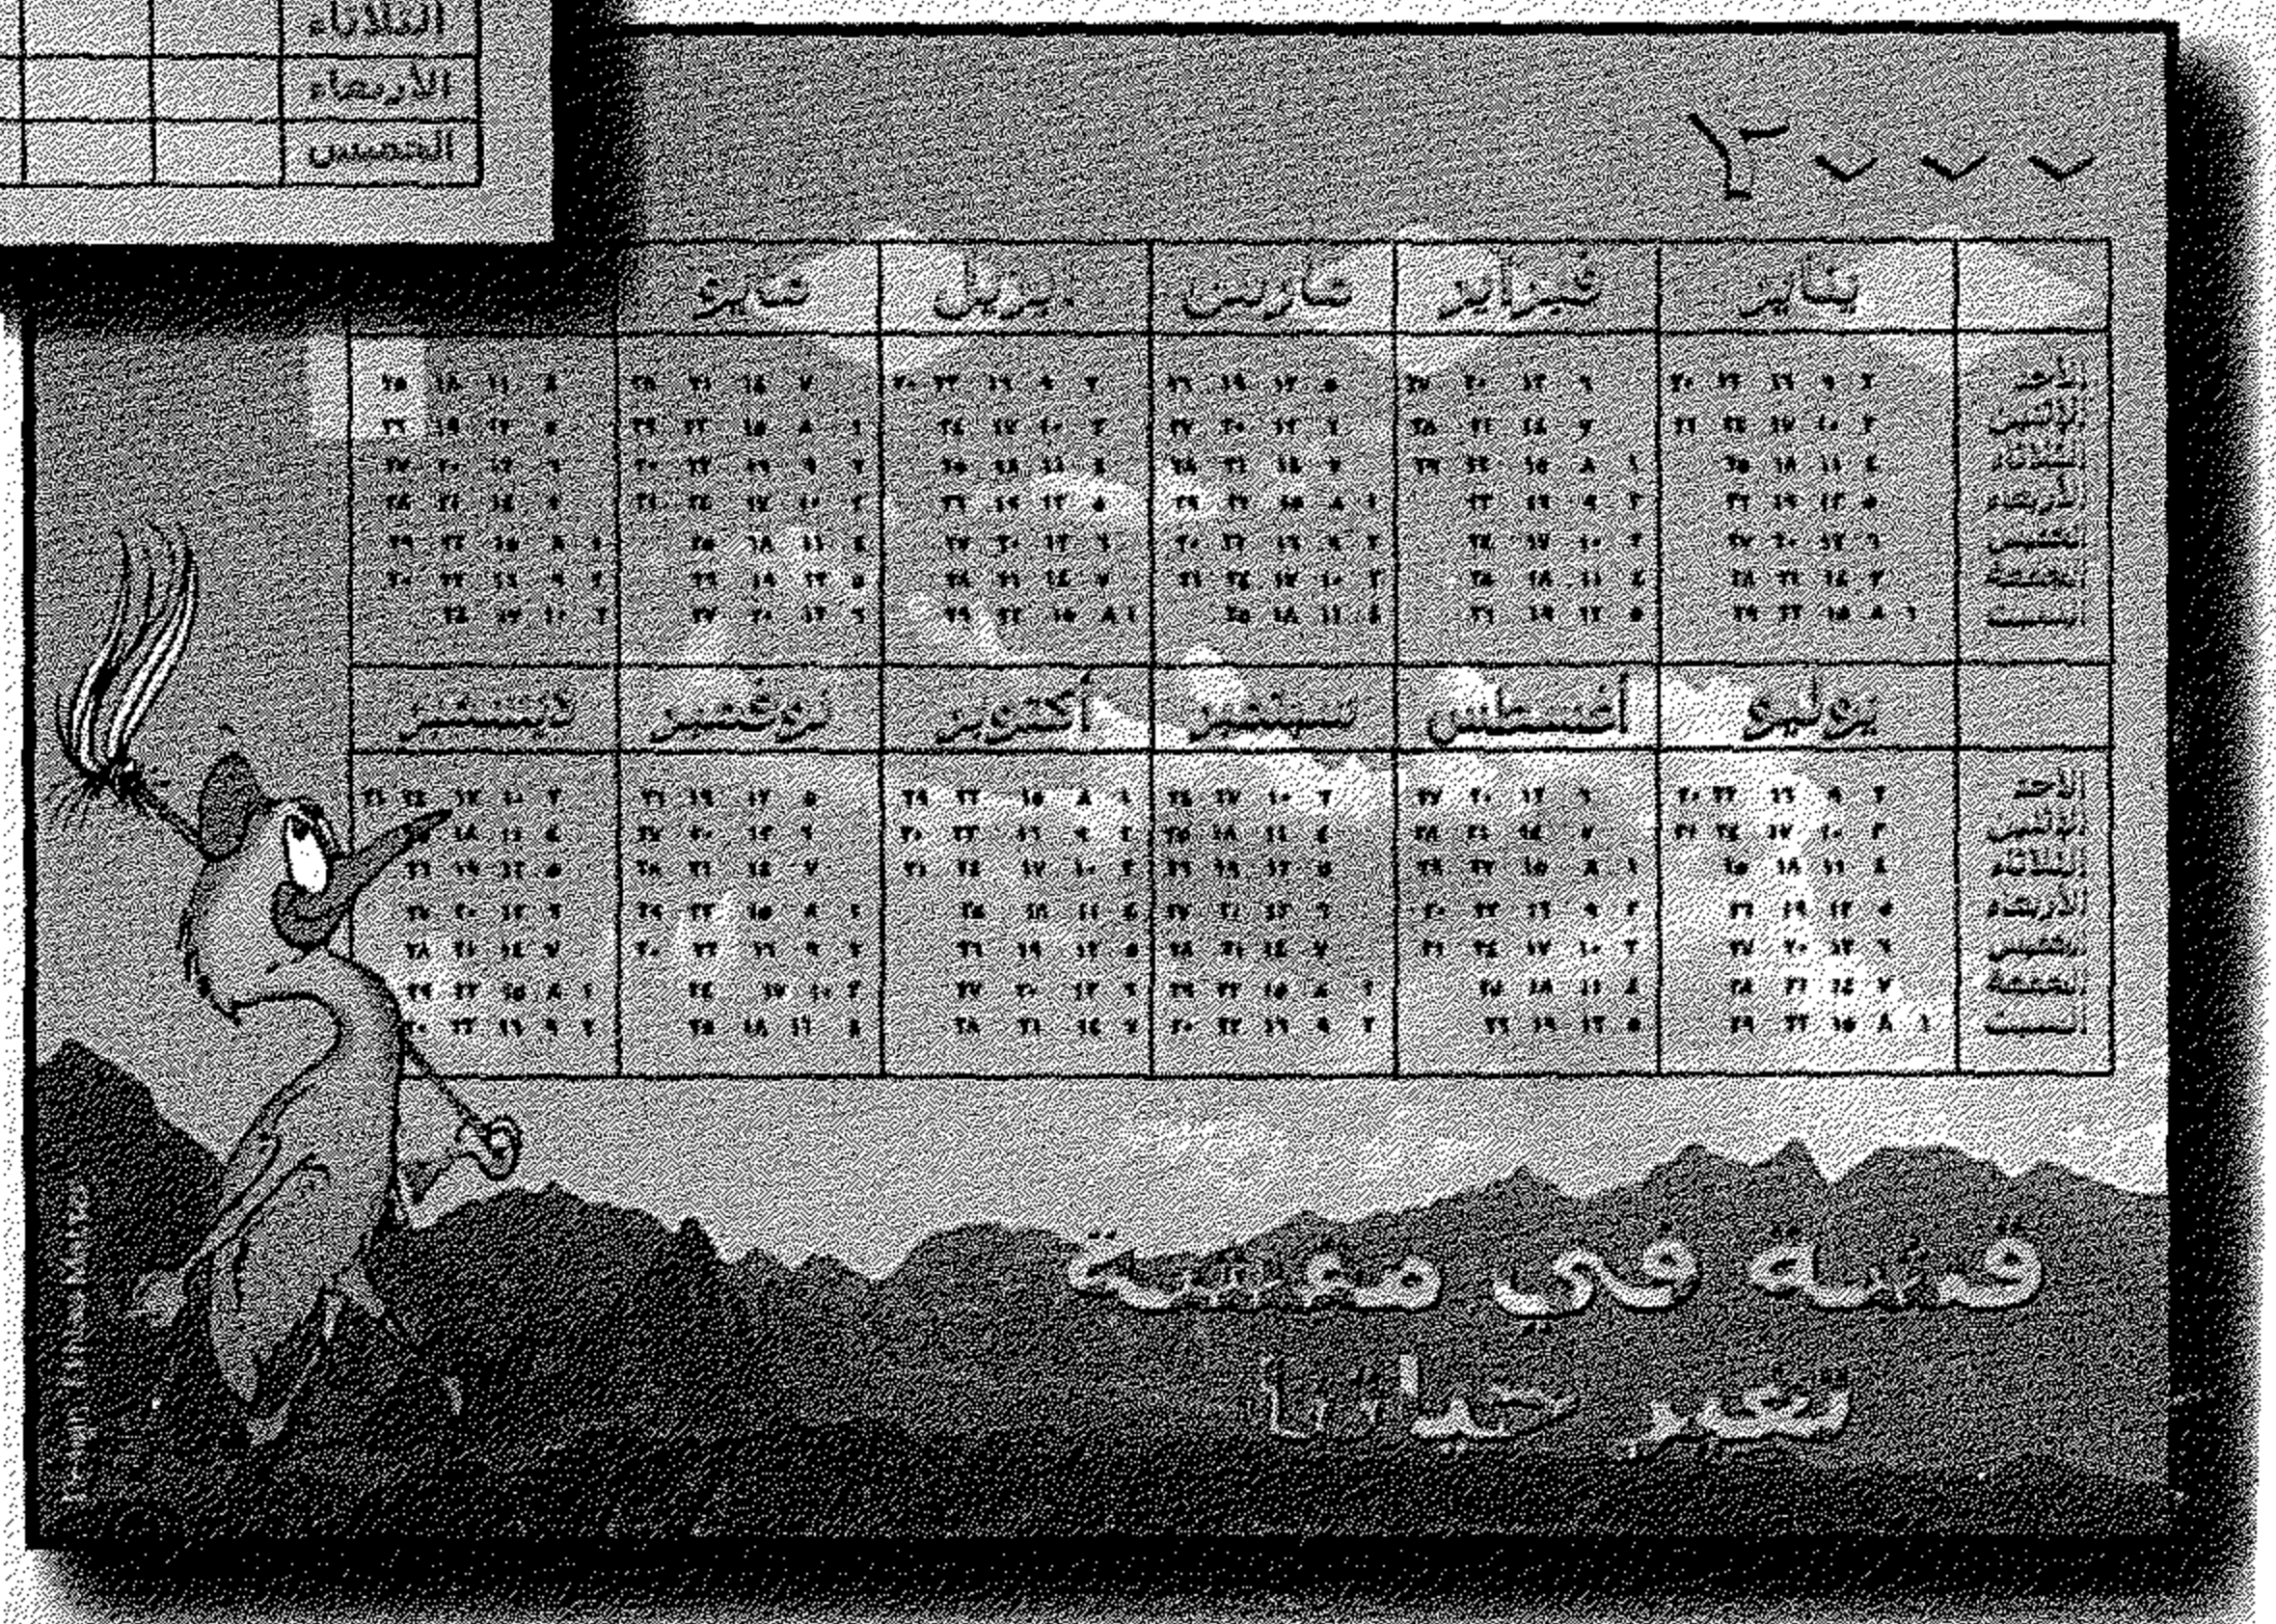 الثلاثاء
الأربعاء
الخميس
يناير فبراير مارس أبريل مايو
الأحد ٢ ٩ ١٦ ٢٣ ٣٠ ٦ ١٣ ٢٠ ٢٧ ٥ ١٢ ١٩ ٢٦ ٢ ٩ ١٦ ٢٣ ٣٠ ٧ ١٤ ٢١ ٢٨ ٤ ١١ ١٨ ٢٥
الأثنين ٣ ١٠ ١٧ ٢٤ ٣١ ٧ ١٤ ٢١ ٢٨ ٦ ١٣ ٢٠ ٢٧ ٣ ١٠ ١٧ ٢٤ ١ ٨ ١٥ ٢٢ ٢٩ ٥ ١٢ ١٩ ٢٦
الثلاثاء ٤ ١١ ١٨ ٢٥ ١ ٨ ١٥ ٢٢ ٢٩ ٧ ١٤ ٢١ ٢٨ ٤ ١١ ١٨ ٢٥ ٢ ٩ ١٦ ٢٣ ٣٠ ٦ ١٣ ٢٠ ٢٧
الأربعاء ٥ ١٢ ١٩ ٢٦ ٢ ٩ ١٦ ٢٣ ١ ٨ ١٥ ٢٢ ٢٩ ٥ ١٢ ١٩ ٢٦ ٣ ١٠ ١٧ ٢٤ ٣١ ٧ ١٤ ٢١ ٢٨
الخميس ٦ ١٣ ٢٠ ٢٧ ٣ ١٠ ١٧ ٢٤ ٢ ٩ ١٦ ٢٣ ٣٠ ٦ ١٣ ٢٠ ٢٧ ٤ ١١ ١٨ ٢٥ ١ ٨ ١٥ ٢٢ ٢٩
الجمعة ٧ ١٤ ٢١ ٢٨ ٤ ١١ ١٨ ٢٥ ٣ ١٠ ١٧ ٢٤ ٣١ ٧ ١٤ ٢١ ٢٨ ٥ ١٢ ١٩ ٢٦ ٢ ٩ ١٦ ٢٣ ٣٠
السبت ١ ٨ ١٥ ٢٢ ٢٩ ٥ ١٢ ١٩ ٢٦ ٤ ١١ ١٨ ٢٥ ١ ٨ ١٥ ٢٢ ٢٩ ٦ ١٣ ٢٠ ٢٧ ٣ ١٠ ١٧ ٢٤
يوليو أغسطس سبتمبر أكتوبر نوفمبر ديسمبر
الأحد ٢ ٩ ١٦ ٢٣ ٣٠ ٦ ١٣ ٢٠ ٢٧ ٣ ١٠ ١٧ ٢٤ ١ ٨ ١٥ ٢٢ ٢٩ ٥ ١٢ ١٩ ٢٦ ٣ ١٠ ١٧ ٢٤ ٣١
الأثنين ٣ ١٠ ١٧ ٢٤ ٣١ ٧ ١٤ ٢١ ٢٨ ٤ ١١ ١٨ ٢٥ ٢ ٩ ١٦ ٢٣ ٣٠ ٦ ١٣ ٢٠ ٢٧ ٤ ١١ ١٨ ٢٥
الثلاثاء ٤ ١١ ١٨ ٢٥ ١ ٨ ١٥ ٢٢ ٢٩ ٥ ١٢ ١٩ ٢٦ ٣ ١٠ ١٧ ٢٤ ٣١ ٧ ١٤ ٢١ ٢٨ ٥ ١٢ ١٩ ٢٦
الأربعاء ٥ ١٢ ١٩ ٢٦ ٢ ٩ ١٦ ٢٣ ٣٠ ٦ ١٣ ٢٠ ٢٧ ٤ ١١ ١٨ ٢٥ ١ ٨ ١٥ ٢٢ ٢٩ ٦ ١٣ ٢٠ ٢٧
الخميس ٦ ١٣ ٢٠ ٢٧ ٣ ١٠ ١٧ ٢٤ ٣١ ٧ ١٤ ٢١ ٢٨ ٥ ١٢ ١٩ ٢٦ ٢ ٩ ١٦ ٢٣ ٣٠ ٧ ١٤ ٢١ ٢٨
الجمعة ٧ ١٤ ٢١ ٢٨ ٤ ١١ ١٨ ٢٥ ١ ٨ ١٥ ٢٢ ٢٩ ٦ ١٣ ٢٠ ٢٧ ٣ ١٠ ١٧ ٢٤ ١ ٨ ١٥ ٢٢ ٢٩
السبت ١ ٨ ١٥ ٢٢ ٢٩ ٥ ١٢ ١٩ ٢٦ ٢ ٩ ١٦ ٢٣ ٣٠ ٧ ١٤ ٢١ ٢٨ ٤ ١١ ١٨ ٢٥ ٢ ٩ ١٦ ٢٣ ٣٠
فى